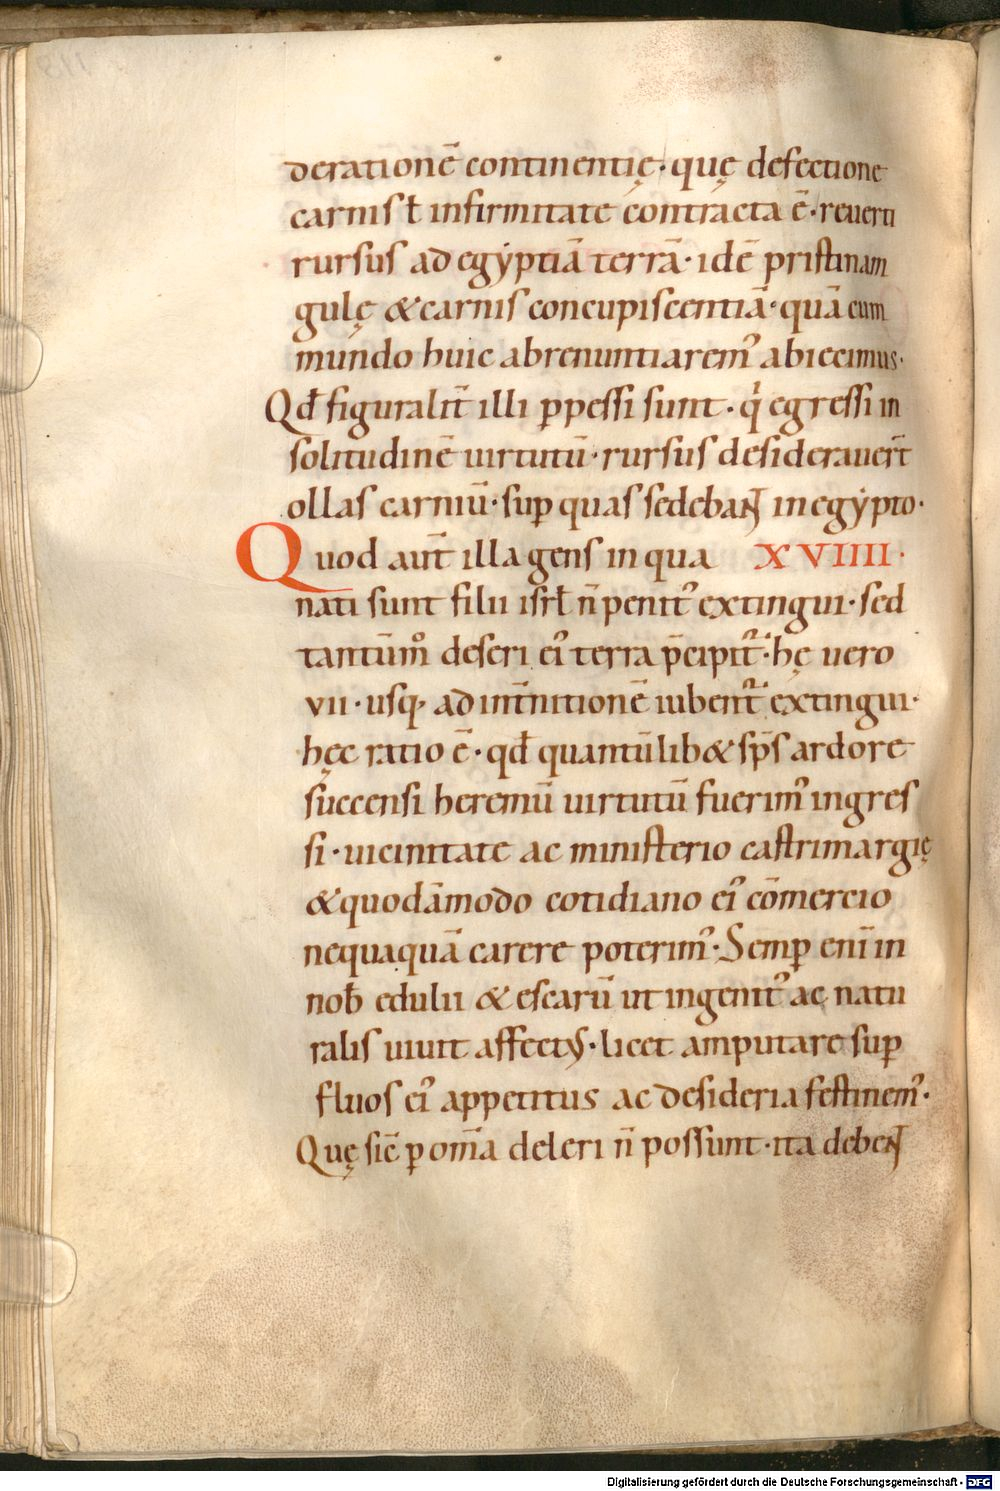 derationē continentię· quę defectione
carnis ł infirmitate contracta ē· reuerti
rursus ad egẏptiā terrā· idē pristinam
gulę & carnis concupiscentiā· quā cum
mundo huic abrenuntiarem᾿ abiecimus·
Qđ figuralit̄ illi ꝑpessi sunt· q̇ egressi in
solitudinē uirtutū· rursus desiderauer̄t
ollas carniū· suꝑ quas sedebant in egẏpto·
Quod aut̄ illa gens in qua XVIIII·
nati sunt filii isrł n̄ penit᾿ extingui· sed
tantūm̊ deseri ei᾿ terra p̄cipit᷑· hę uero
vii· usq; ad int̄nitionē iubent᷑ extingui·
hęc ratio ē· qđ quantūlib& sp̄s ardore
succensi heremū uirtutū fuerim᾿ ingres
si· uicinitate ac ministerio castrimargię
& quodāmodo cotidiano ei᾿ cōmercio
nequaquā carere poterim᾿· Semꝑ eni̅ in
nob̄ edulii & escarū ut ingenit᾿ ac natu
ralis uiuit affectus· licet amputare suꝑ
fluos ei᾿ appetitus ac desideria festinem᾿·
Quę sic̄ ꝑ om̄a deleri n̄ possunt· ita debent
Digitalisierung gefördert durch die Deutsche Forschungsgemeinschaft - DFG